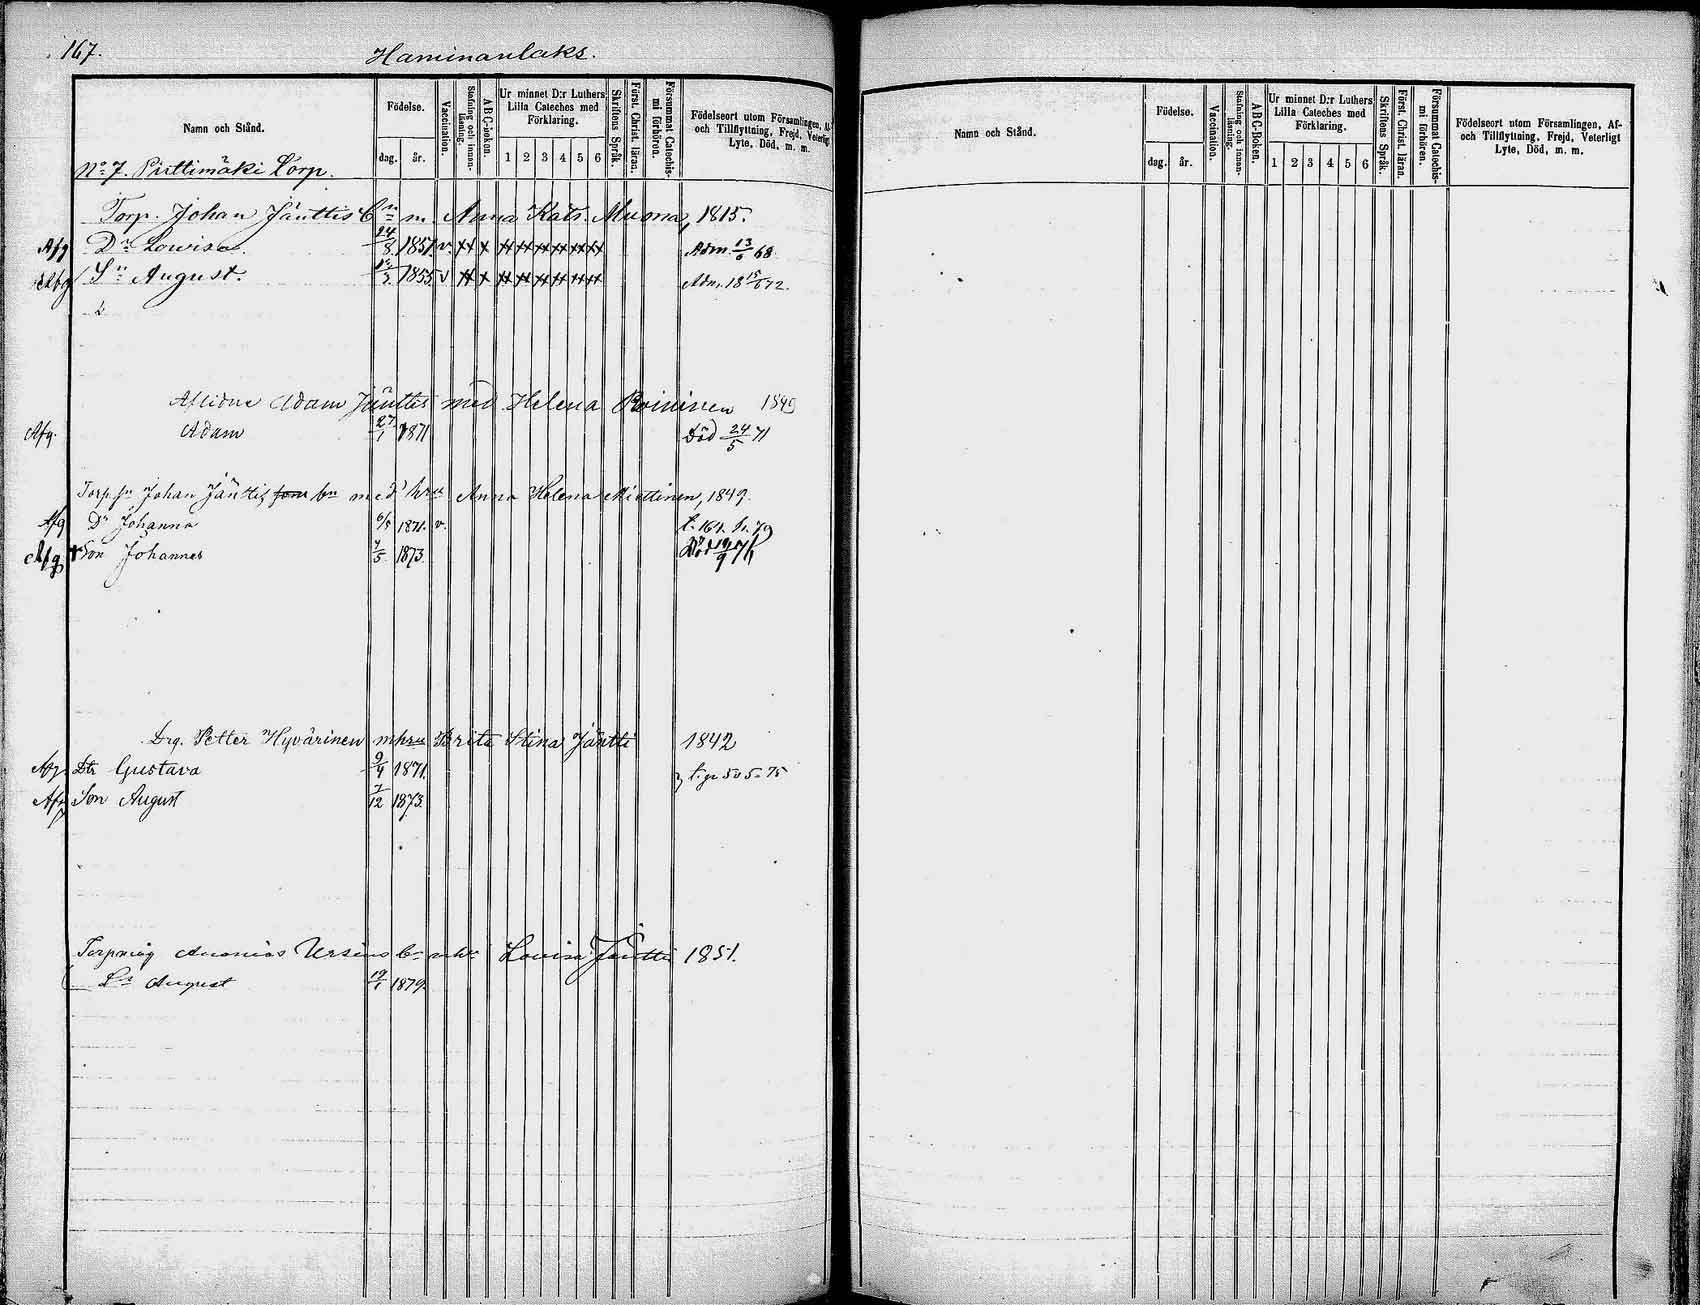 167.
Haminanlaks.
Namn och Stånd.
Födelse.
dag. år.
Vaccination.
Stafning och innanläsning.
ABC-boken.
Ur minnet D:r Luthers Lilla Cateches med Förklaring.
1 2 3 4 5 6
Skriftens Språk.
Först. Christ. läran.
Försummat Catechismi förhören.
Födelseort utom Församlingen, Af- och Tillflyttning, Frejd, Veterligt Lyte, Död, m. m.
No 7. Puttimäki Torp.
Torp. Johan Jänttis bn m. Anna Kats. Muona, 1815.
Afg Dr Lowisa. 24/8 1851. v. Adm. 13/6 68.
Afg Sn August. 1855 v Adm. 18 15/6 72.
Aflidne Adam Jänttis med Helena Roininen 1849
Afg. Adam 27/1 1871 Död 24/5 71
Torp.sn Johan Jänttis bn med hru Anna Helena Miettinen, 1849.
Afg Dr Johanna 6/5 1871. v. t. 161. 79
Afg Son Johannes 4/5 1873. Död 19/9 76
Drg. Petter Hyvärinen m hru Brita Stina Jäntti 1842
Afg. Dtr Gustava 9/4 1871.
Afg Son August 7/12 1873.
Ursinus Lovisa Jäntti 1851.
August 19/1 1879.
Namn och Stånd.
Födelse.
dag. år.
Vaccination.
Stafning och innanläsning.
ABC-Boken.
Ur minnet D:r Luthers Lilla Cateches med Förklaring.
1 2 3 4 5 6
Skriftens Språk.
Först. Christ. läran.
Försummat Catechismi förhören.
Födelseort utom Församlingen, Af- och Tillflyttning, Frejd, Veterligt Lyte, Död, m. m.